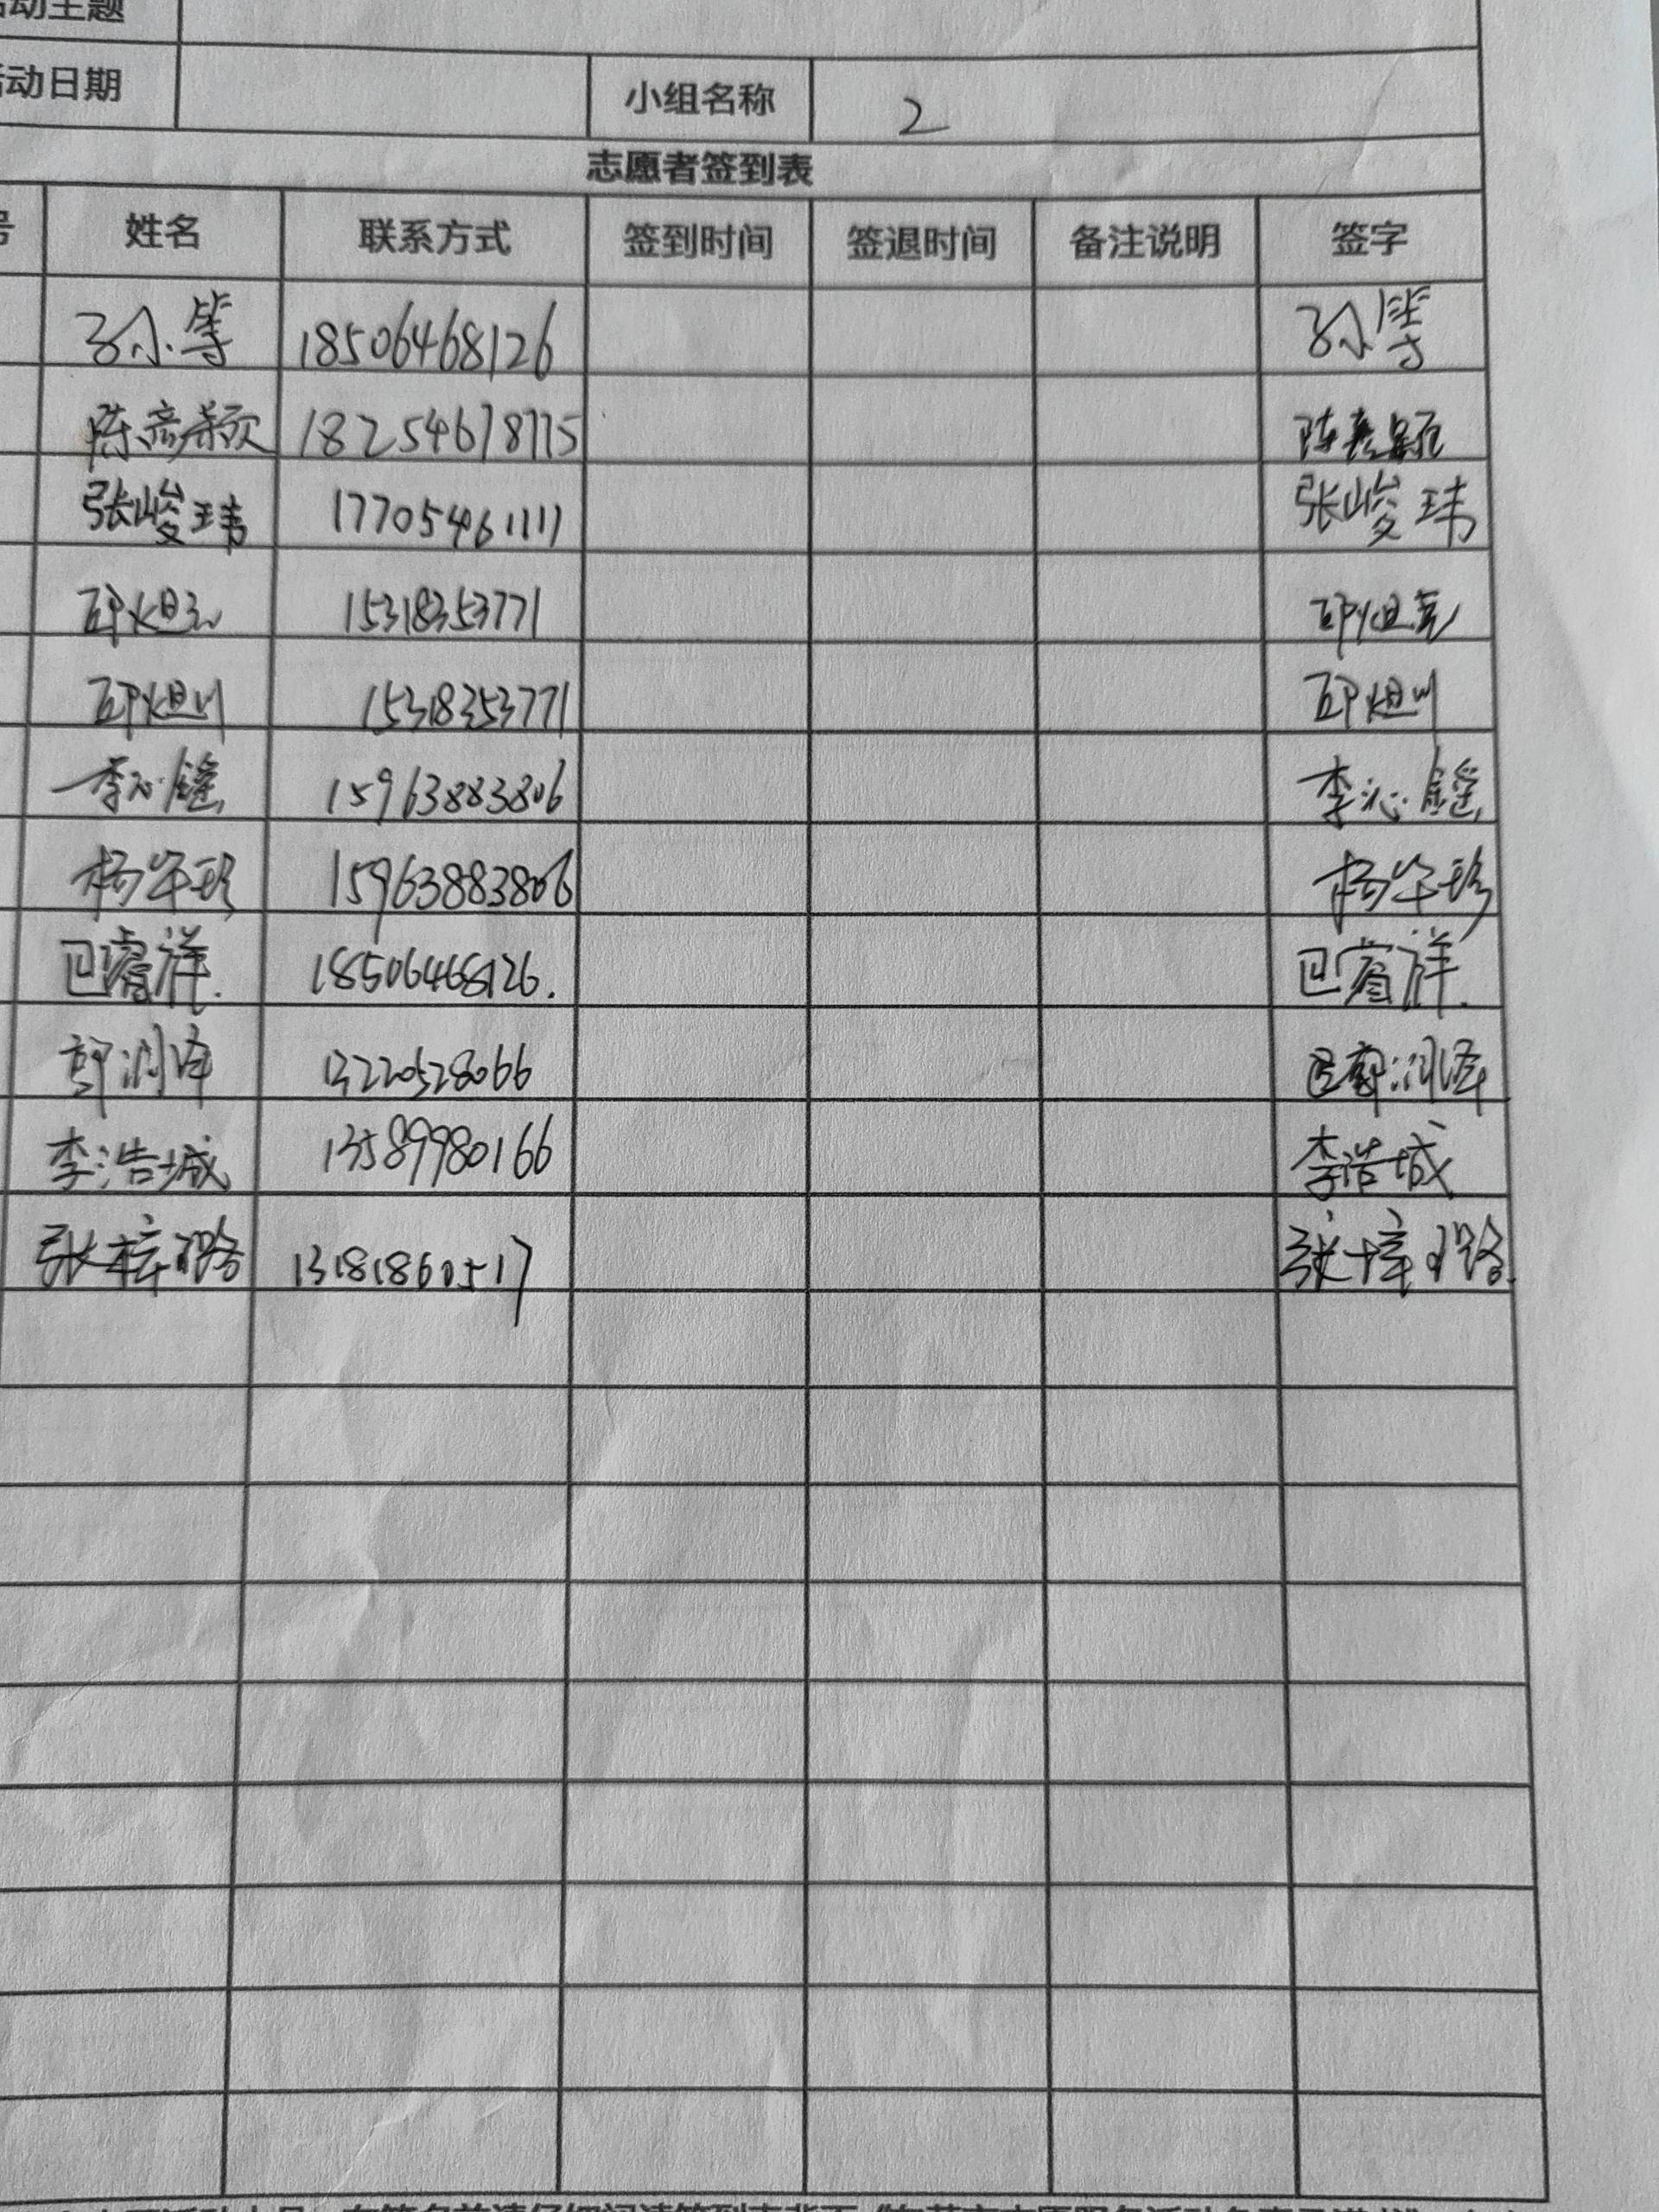 活动主题
活动日期 小组名称 2
志愿者签到表
号 姓名 联系方式 签到时间 签退时间 备注说明 签字
孙等 18506468126 孙等
陈彦颖 18254678775 陈彦颖
张峻玮 17705461111 张峻玮
邱煜 15318353771 邱煜
邱煜川 15318353771 邱煜川
李沁 15963883806 李沁
杨华珍 15963883806 杨华珍
巴睿祥. 18506468126. 巴睿祥.
郭润泽 13220528066 郭润泽
李浩城 13589980166 李浩城
张梓璐 13181860517 张梓璐.